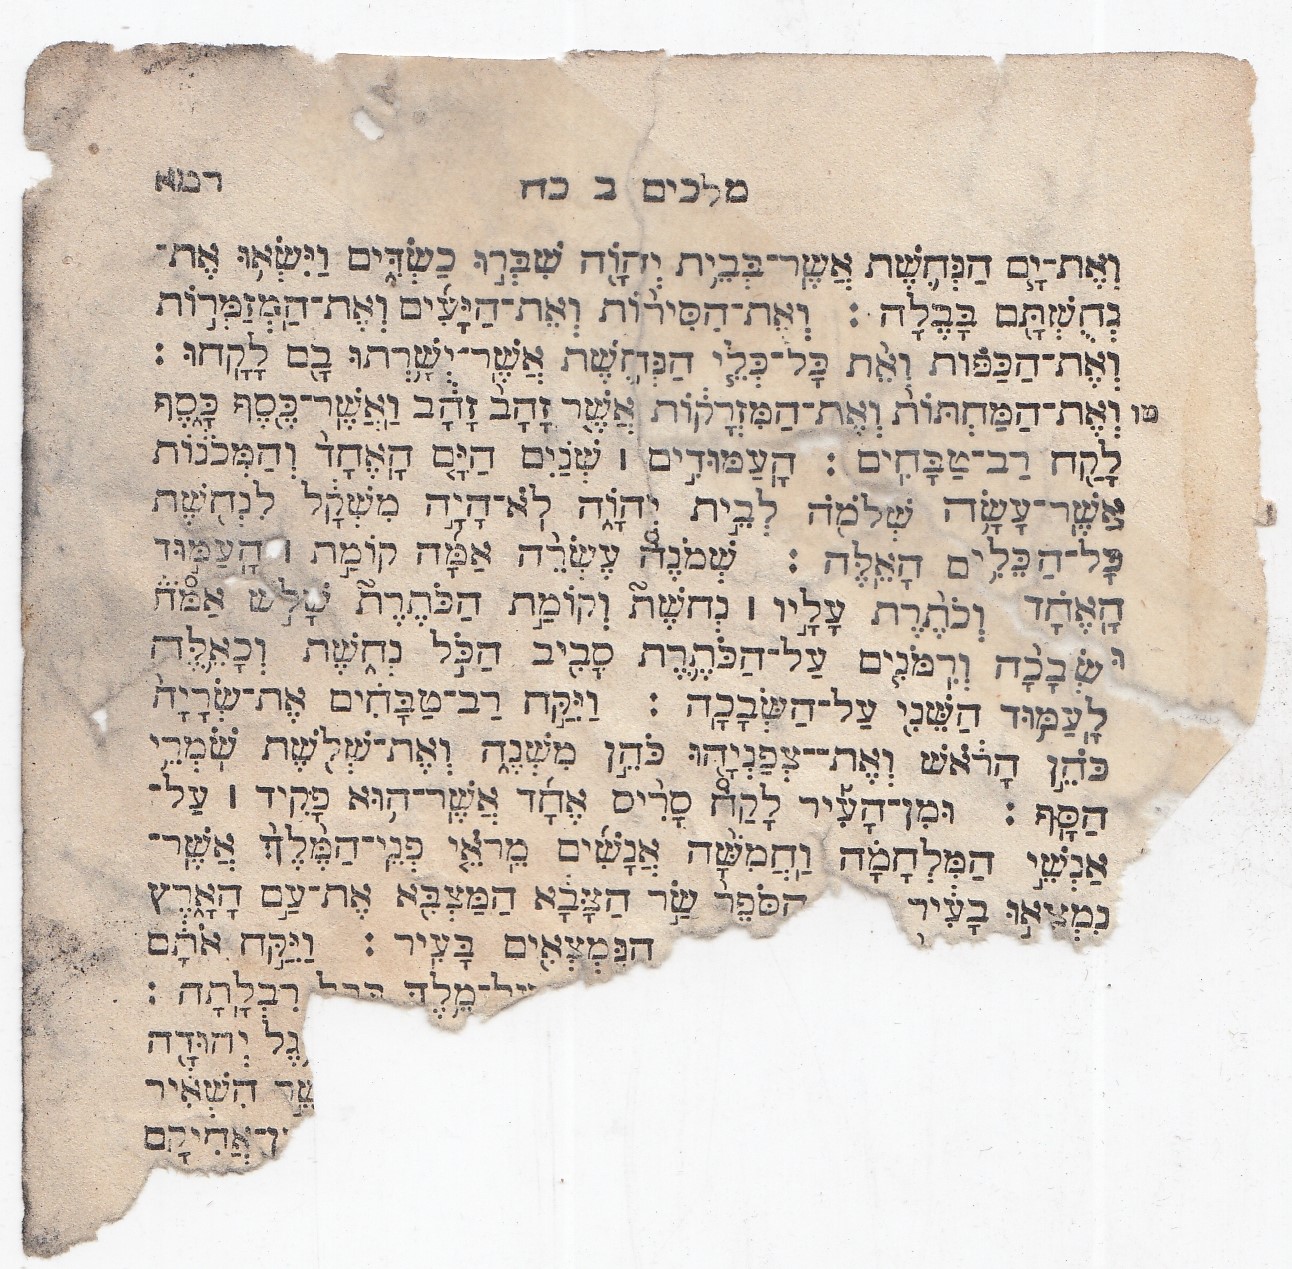 מלכים ב כח רמא
וְאֶת־יָ֧ם הַנְּחֹ֛שֶׁת אֲשֶׁ֥ר־בְּבֵית־יְהוָ֖ה שִׁבְּר֣וּ כַשְׂדִּ֑ים וַיִּשְׂא֥וּ אֶת־
נְחֻשְׁתָּ֖ם בָּבֶֽלָה : וְאֶת־הַסִּירֹ֨ת וְאֶת־הַיָּעִ֜ים וְאֶת־הַֽמְזַמְּר֣וֹת
וְאֶת־הַכַּפּ֗וֹת וְאֵ֨ת כָּל־כְּלֵ֧י הַנְּחֹ֛שֶׁת אֲשֶׁ֥ר־יְשָֽׁרְתוּ בָ֖ם לָקָֽחוּ :
טו וְאֶת־הַמַּחְתּוֹת֙ וְאֶת־הַמִּזְרָק֔וֹת אֲשֶׁ֤ר זָהָב֙ זָהָ֔ב וַֽאֲשֶׁר־כֶּ֖סֶף כָּ֑סֶף
לָקַ֖ח רַב־טַבָּחִֽים : הָֽעַמּוּדִ֣ים ׀ שְׁנַ֗יִם הַיָּ֤ם הָֽאֶחָד֙ וְהַמְּכֹנ֔וֹת
אֲשֶׁר־עָשָׂ֥ה שְׁלֹמֹ֖ה לְבֵ֣ית יְהוָ֑ה לֹא־הָיָ֣ה מִשְׁקָ֔ל לִנְחֹ֖שֶׁת
כָּל־הַכֵּלִ֥ים הָאֵֽלֶּה : שְׁמֹנֶה֩ עֶשְׂרֵ֨ה אַמָּ֜ה קוֹמַ֣ת ׀ הָֽעַמּ֣וּד
הָֽאֶחָ֗ד וְכֹתֶ֨רֶת עָלָ֥יו ׀ נְחֹשֶׁת֮ וְקוֹמַ֣ת הַכֹּתֶרֶת֮ שָׁלֹ֣שׁ אַמֹּה֒
וּ שְׂבָכָ֨ה וְרִמֹּנִ֧ים עַֽל־הַכֹּתֶ֛רֶת סָבִ֖יב הַכֹּ֣ל נְחֹ֑שֶׁת וְכָאֵ֛לֶּה
לָֽעַמּ֥וּד הַשֵּׁנִ֖י עַל־הַשְּׂבָכָֽה : וַיִּקַּ֣ח רַב־טַבָּחִ֗ים אֶת־שְׂרָיָה֙
כֹּהֵ֣ן הָרֹ֔אשׁ וְאֶת־צְפַנְיָ֖הוּ כֹּהֵ֣ן מִשְׁנֶ֑ה וְאֶת־שְׁלֹ֖שֶׁת שֹֽׁמְרֵ֥י
הַסַּֽף : וּמִן־הָעִ֡יר לָקַח֩ סָרִ֨יס אֶחָ֜ד אֲשֶׁר־ה֥וּא פָקִ֣יד ׀ עַל־
אַנְשֵׁ֣י הַמִּלְחָמָ֗ה וַֽחֲמִשָּׁ֨ה אֲנָשִׁ֜ים מֵֽרֹאֵ֤י פְנֵֽי־הַמֶּ֙לֶךְ֙ אֲשֶׁר־
נִמְצְא֣וּ בָעִ֔יר הַסֹּפֵר֙ שַׂ֣ר הַצָּבָ֔א הַמַּצְבִּ֖א אֶת־עַ֣ם הָאָ֑רֶץ
הַֽנִּמְצְאִ֖ים בָּעִֽיר : וַיִּקַּ֣ח אֹתָ֔ם
־מֶ֥לֶךְ בָּבֶ֖ל רִבְלָֽתָה :
יְהוּדָ֖ה
הִשְׁאִ֗יר
־אֲחִיקָ֥ם